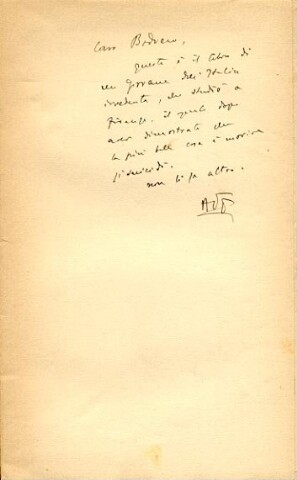 Caro Bodrero,
questo è il libro di
un giovane dell'Italia
irredenta, che studiò a
Firenze. il quale dopo
aver dimostrato che
la più bella cosa è morire
si suicidò.
non ti fa altro.